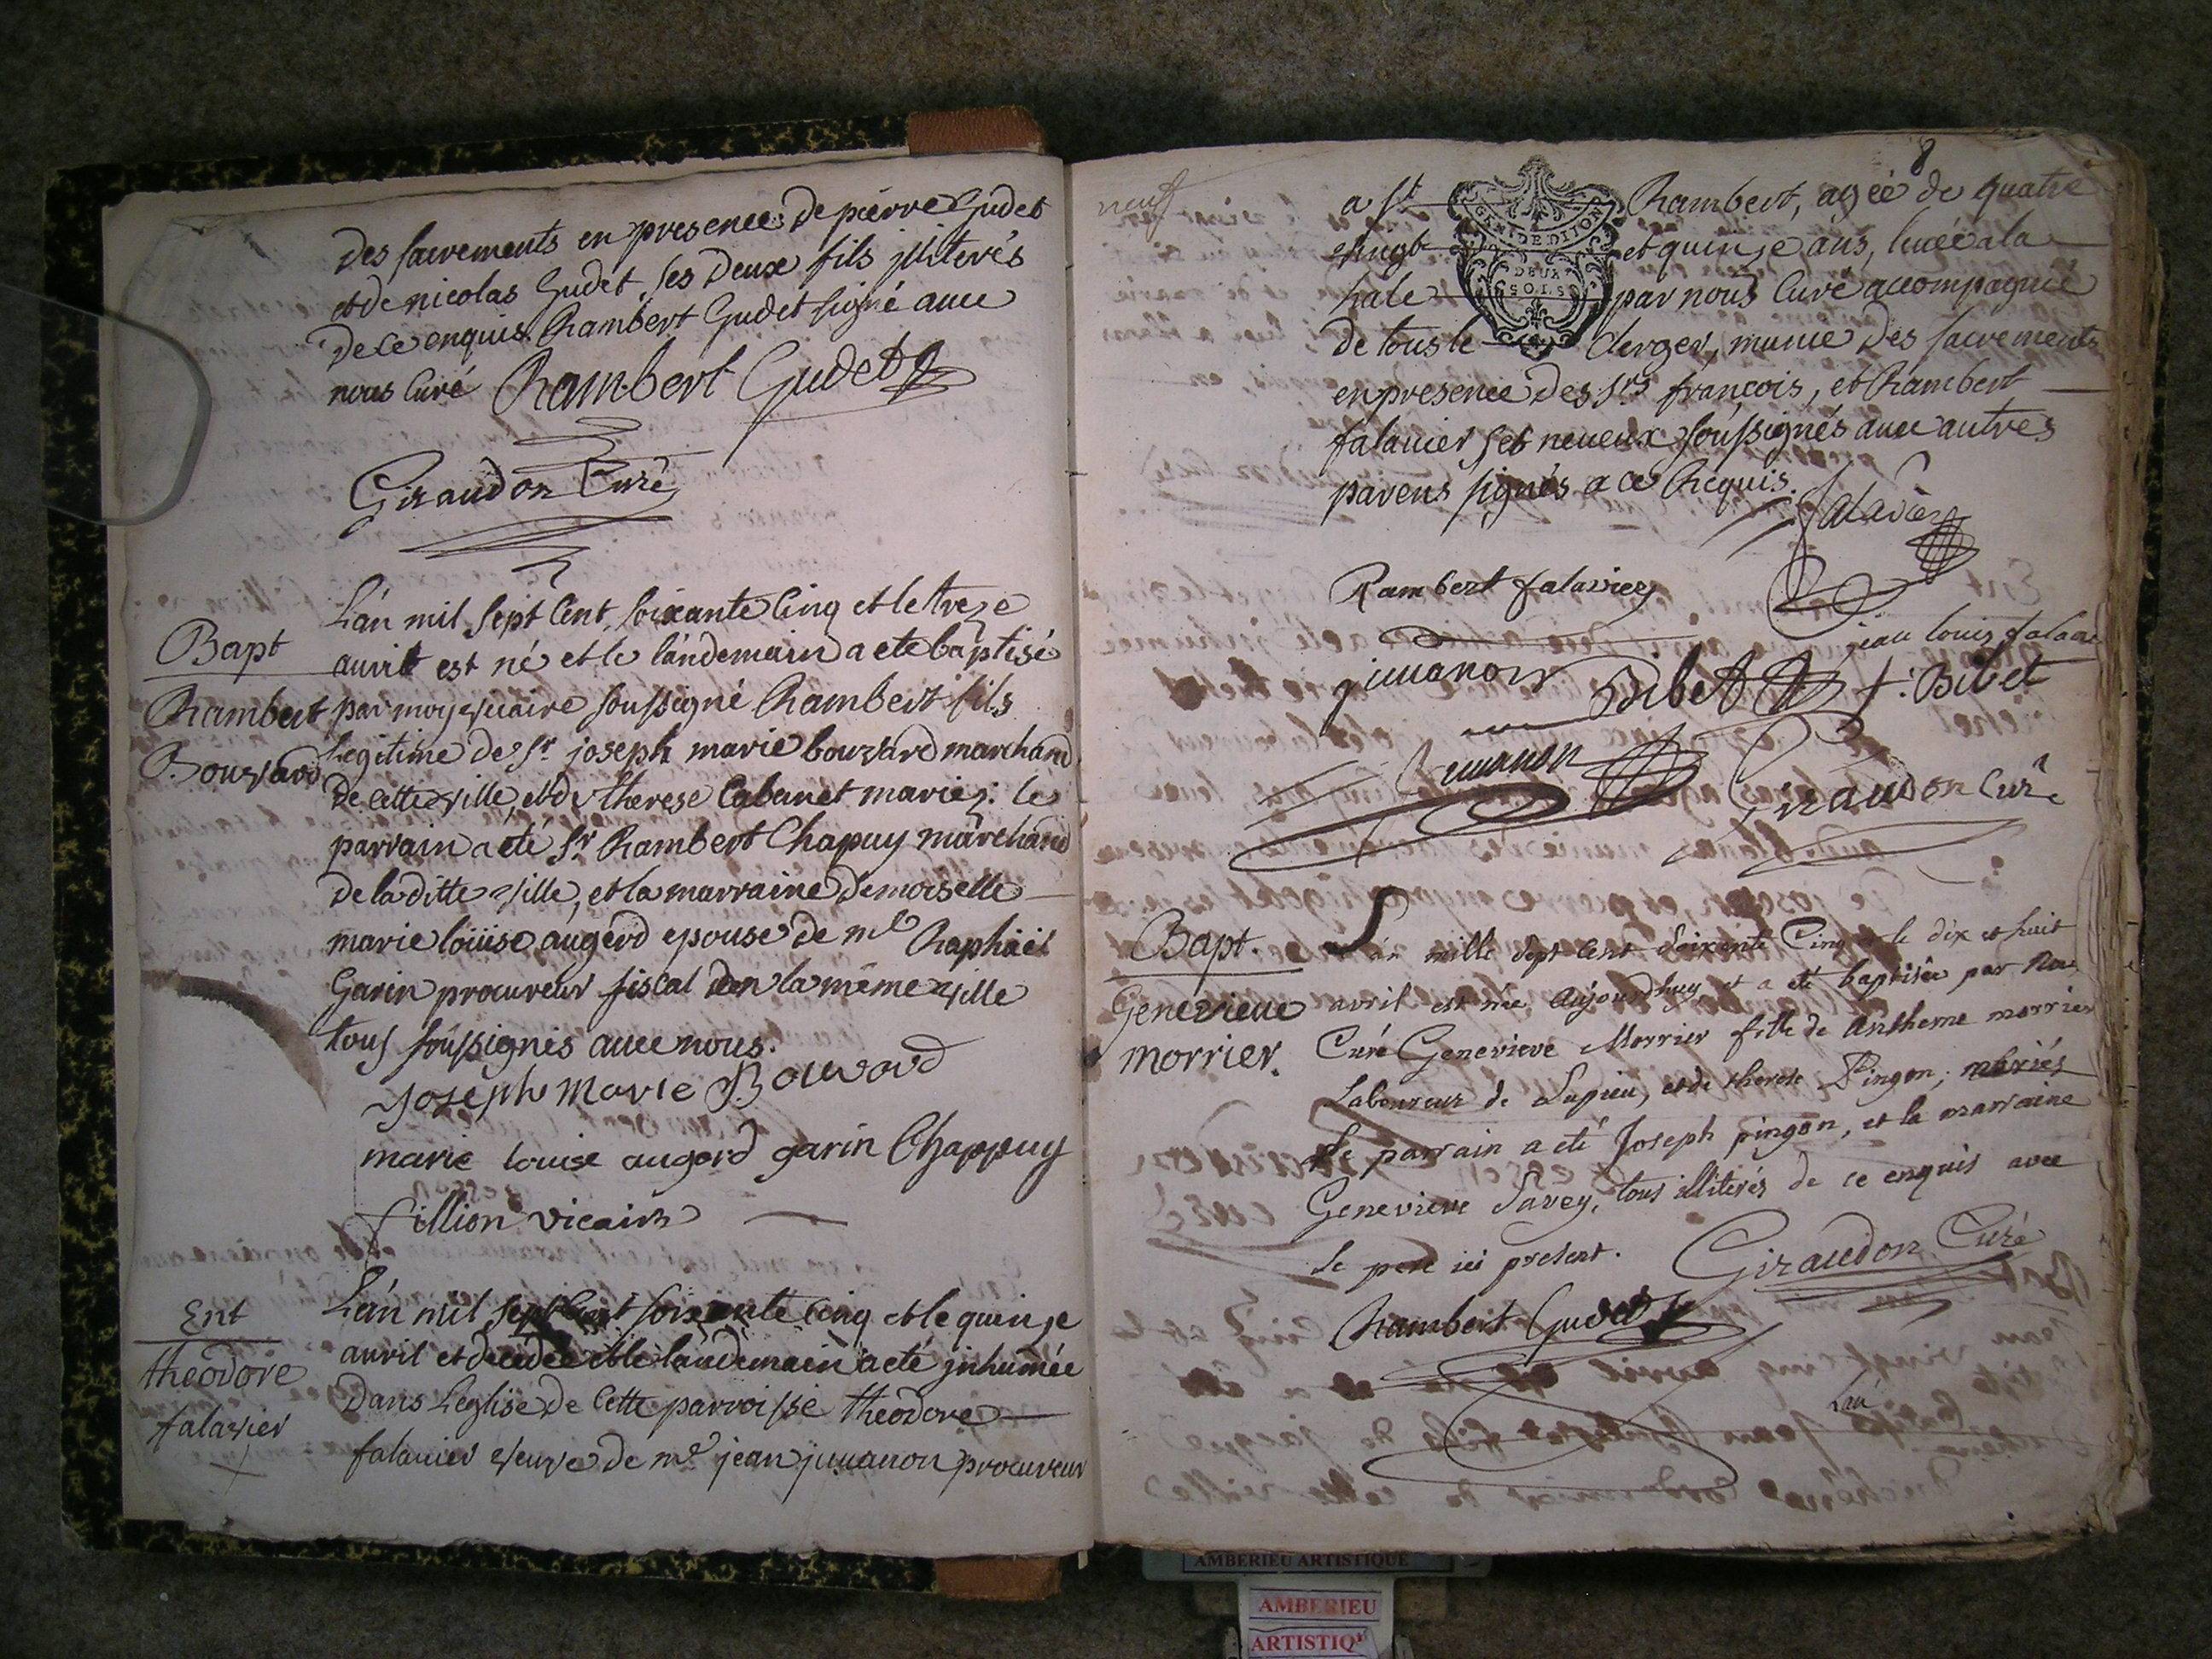 des sacrements en presence de pierre Gudet
et de nicolas Gudet, ses deux fils jlliterés
de ce enquis. Rambert Gudet signé avec
nous Curé Rambert Gudet
Giraudon Curé
Bapt
Rambert
Bouvard
L'an mil sept Cent soixante Cinq et le treze
avril est né et le landemain a eté baptisé
par moy vicaire soussigné Rambert fils
Legitime de Sr joseph marie bouvard marchand
de Cette ville, et de therese Cabanet mariez. le
parrain a eté Sr Rambert Chapuy marchand
de la ditte ville, et la marraine demoiselle
marie loüise augerd epouse de me Raphäel
Garin procureur fiscal en la même ville
tous soussignés avec nous.
Joseph Marie Bouvard
marie louise augerd garin Chappuy
fillion vicaire
Ent
theodore
falavier
L'an mil sept Cent soixante Cinq et le quinze
avril et decedée et le landemain a eté jnhumée
dans L'eglise de Cette parroisse theodore
falavier veuve de me jean juvanon procureur
neuf
8
a St Rambert, agée de quatre
vingt et quinze ans, levée a la
hale par nous Curé accompagné
de tous le Clerger, munie des sacrements
en presence des Srs françois, et Rambert
falavier ses neveux soussignés avec autres
parens signés a ce Requis.
GEN. DE DIJON
DEUX
SOLS
falavier
Rambert falavier
jean louis falavier
juvanon Bibet f: Bibet
juvanon
Giraudon Curé
Bapt.
Genevieve
morrier.
L'an mille sept cent soixente Cinq et le dix et huit
avril est née aujourdhuy et a eté baptisée par Nous
Curé Genevieve Morrier fille de Antheme morrier
Laboureur de Lupieu, et de therese Pingon; mariés
Le parrain a eté Joseph pingon, et la marraine
Genevieve Savey, tous illiterés de ce enquis avec
le pere ici present. Giraudon Curé
Rambert Gudet
L'an
AMBERIEU ARTISTIQUE
AMBERIEU
ARTISTIQ